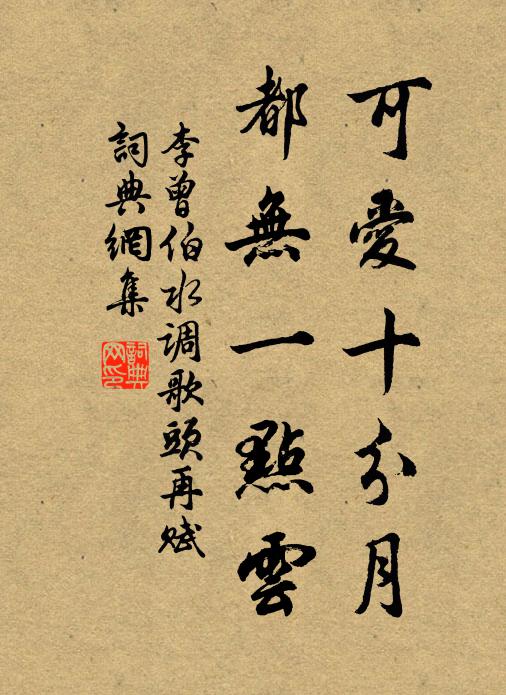 可愛十分月
都無一點雲
李曾伯水调歌頭再赋
詞典網集
詞典网印